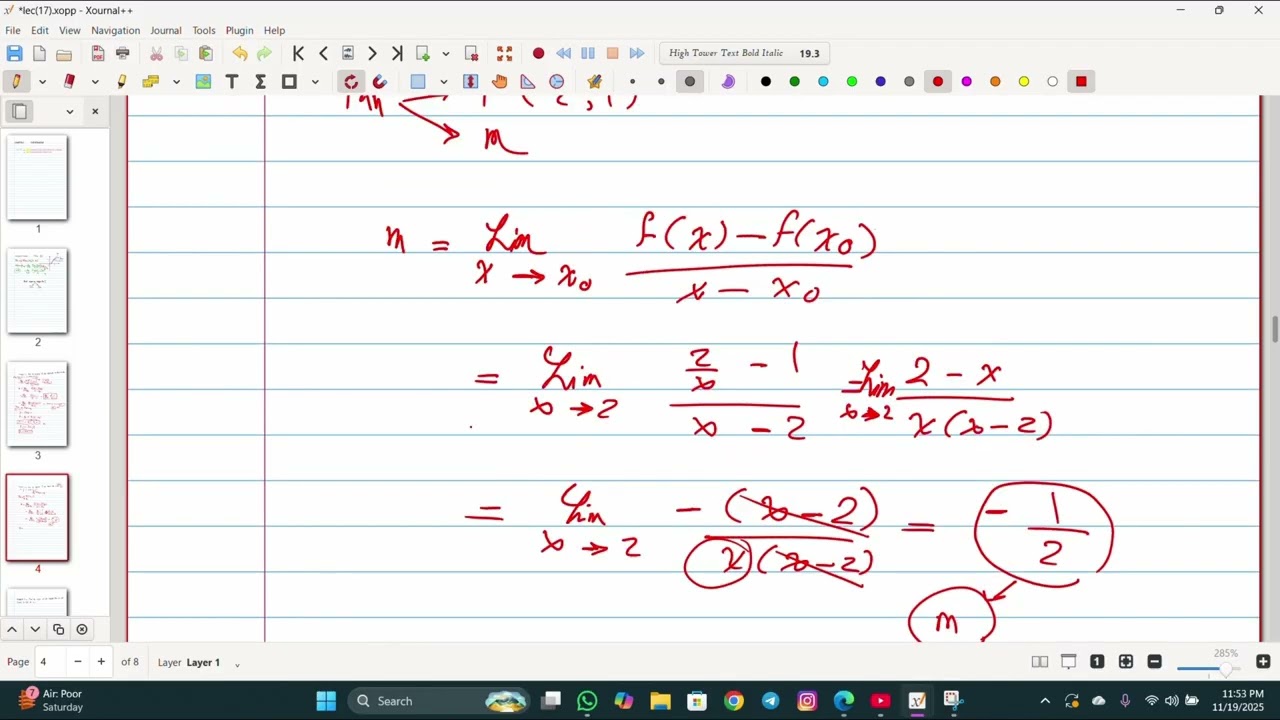 *lec(17).xopp - Xournal++
File Edit View Navigation Journal Tools Plugin Help
High Tower Text Bold Italic 19.3
P(2,1)
m
m = Lim x → x₀ (f(x) − f(x₀)) / (x − x₀)
= Lim x → 2 (2/x − 1) / (x − 2) = Lim x → 2 (2 − x) / (x(x − 2))
= Lim x → 2 −(x − 2) / (x(x − 2)) = − 1/2
m
1
2
3
4
Page 4 − + of 8 Layer Layer 1
285%
7
Air: Poor
Saturday
Search
11:53 PM
11/19/2025